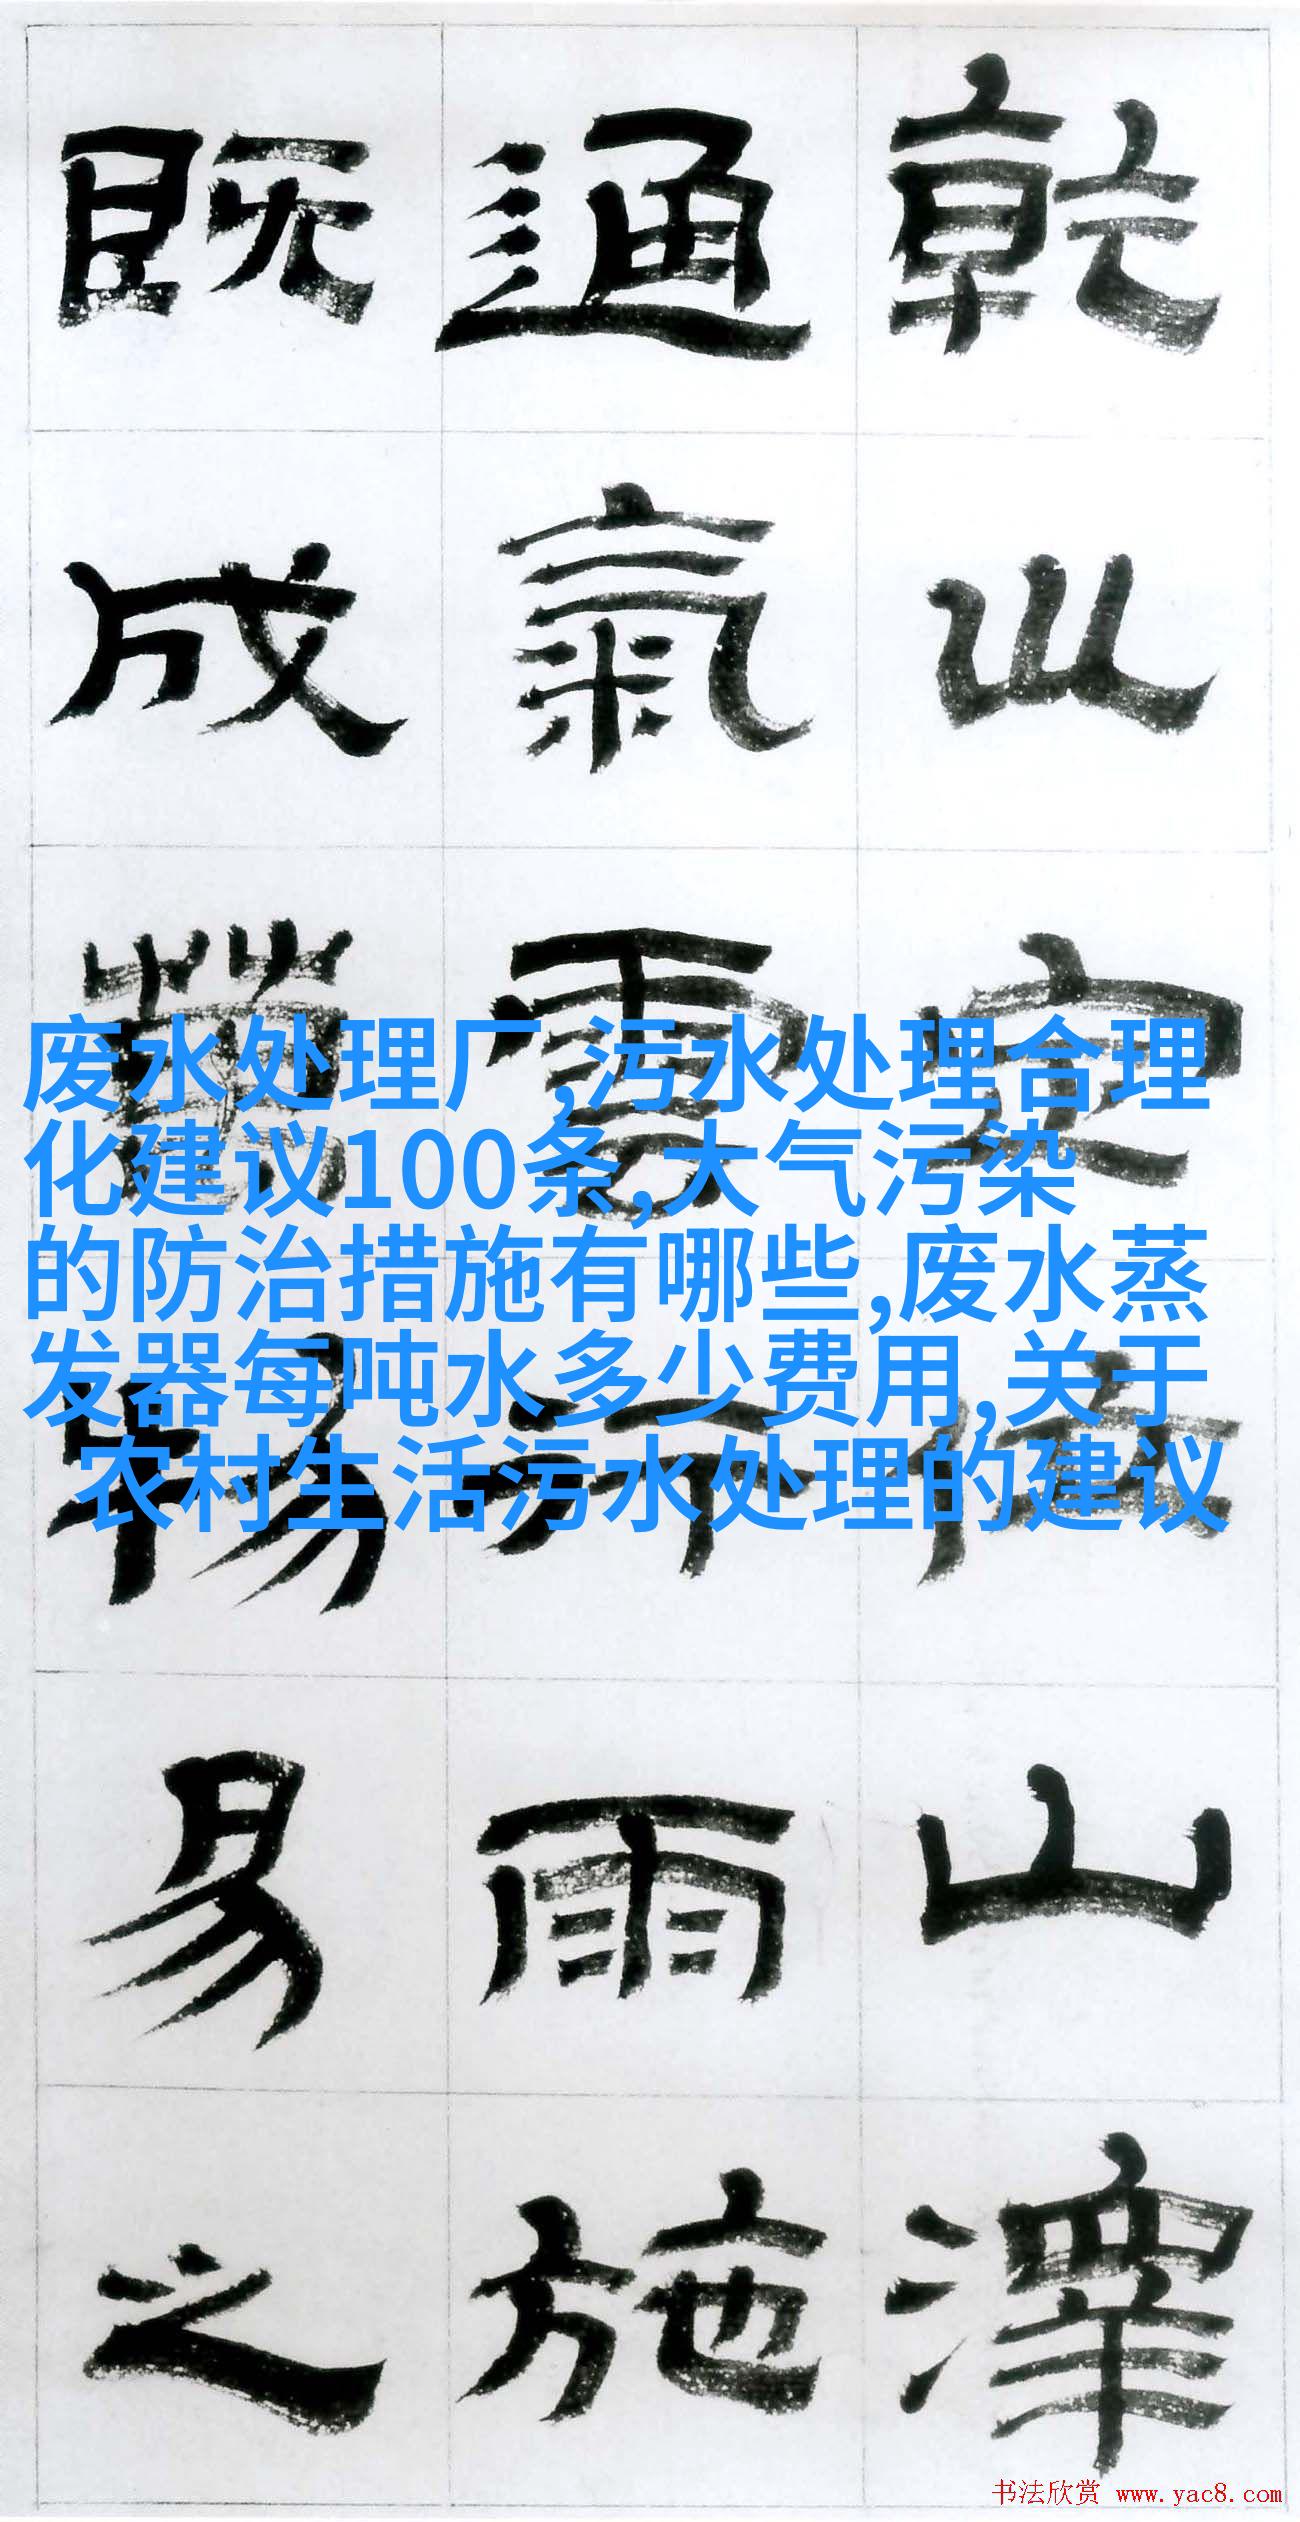 乾川定位山澤
通氣雲行雨施
既成萬物易之
废水处理厂,污水处理合理
化建议100条,大气污染
的防治措施有哪些,废水蒸
发器每吨水多少费用,关于
农村生活污水处理的建议
书法欣赏 www.yac8.com